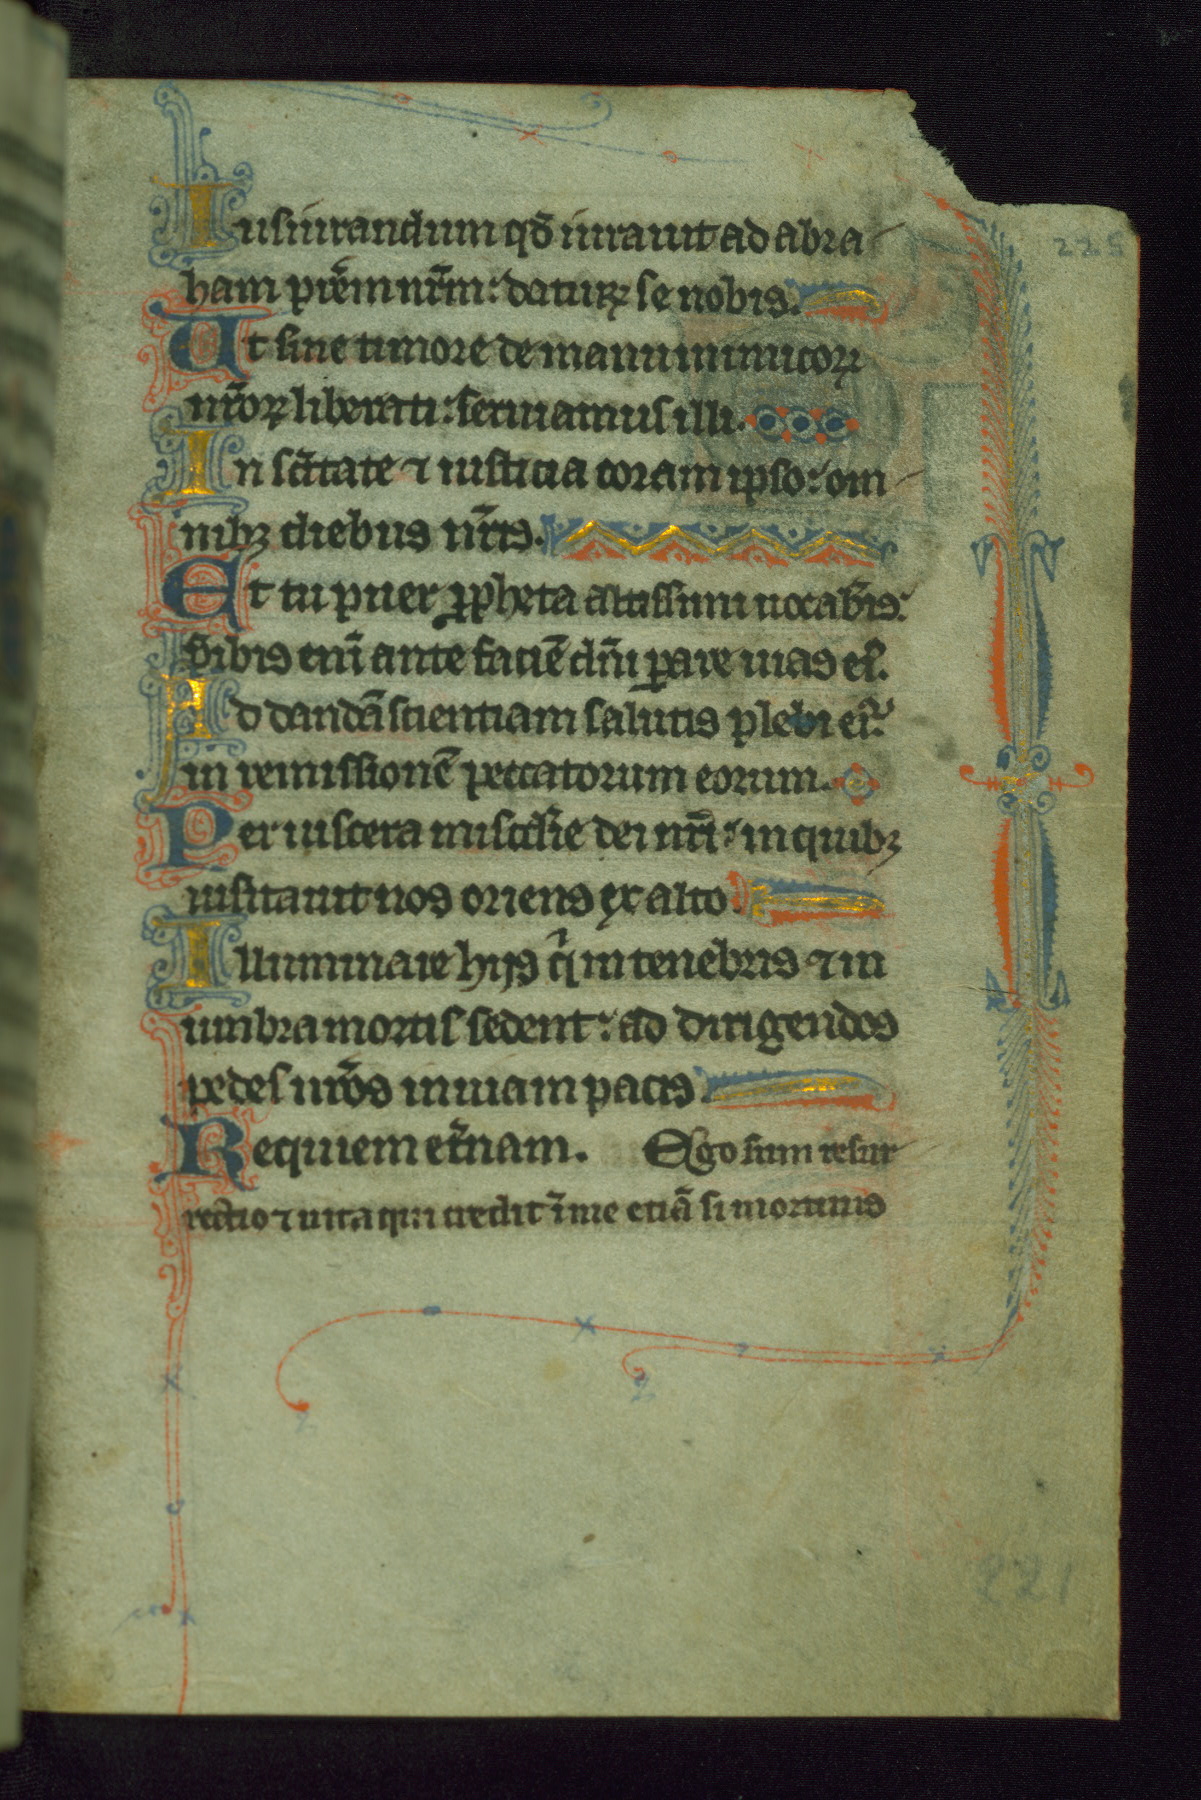 225
Iusiurandum qd̄ iurauit ad abra
ham pr̄em nr̄m: daturꝝ se nobis.
Ut sine timore de manu inimicorꝝ
nr̄orꝝ liberati: seruiamus illi.
In sc̄itate ⁊ iusticia coram ipso: om
nibꝫ diebus nr̄is.
Et tu puer ꝓpheta altissimi uocab̄is:
P̄ibis eni̅ ante facie̅ dn̄i ꝑare uias ei᷒.
Ad danda̅ scientiam salutis plebi ei᷒:
in remissione̅ peccatorum eorum.
Per uiscera mis̄c̄die dei nr̄i: in quibꝫ
uisitauit nos oriens ex alto.
Illuminare hijs qͥ in tenebris ⁊ in
umbra mortis sedent: ad dirigendos
pedes nr̄os in uiam pacis.
Requiem et̄nam. Ego sum resur
rectio ⁊ uita qui credit i̅ me etia̅ si mortuus
221